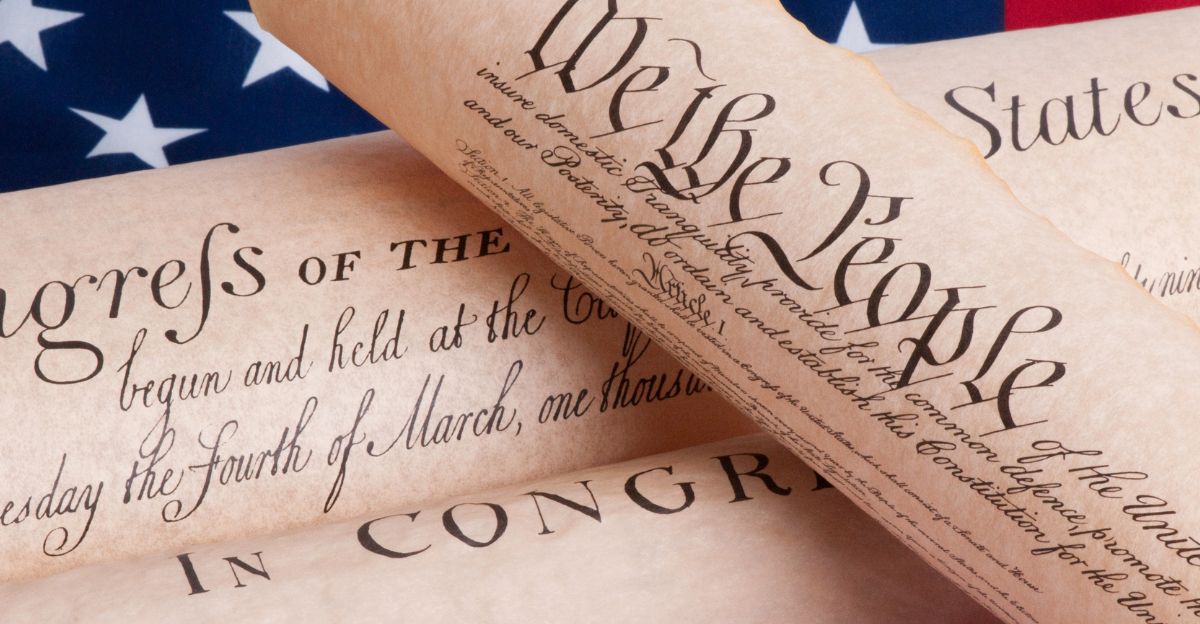 We the People of the Unite
insure domestic Tranquility, provide for the common defence, promote th
and our Posterity, do ordain and establish this Constitution for the Un
Article. I.
Section. 1. All legislative Powers herein granted shall be vested in a Congress of the United States, which shall consist of a Senate and House
States
ngreſs OF THE
begun and held at the Ci
esday the Fourth of March, one thousa
IN CONGR